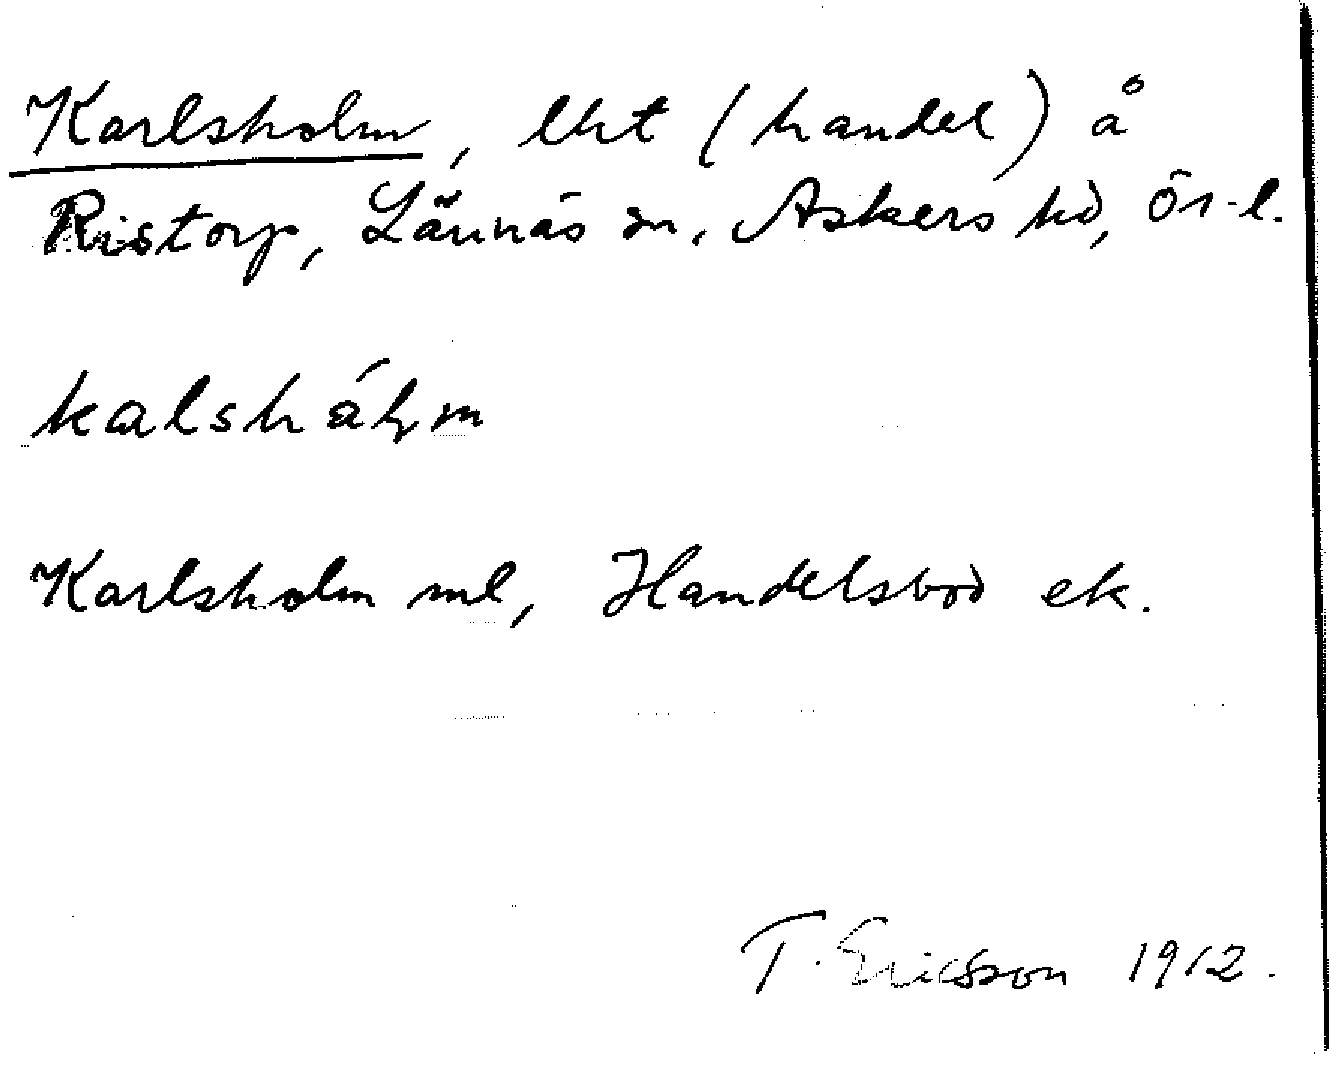 Karlsholm, lht (handel) å
Ristorp, Lännäs sn, Askers hd, Ör. l.
kalshål̥m
Karlsholm ml, Handelsbod ek.
T. Ericsson 1912.